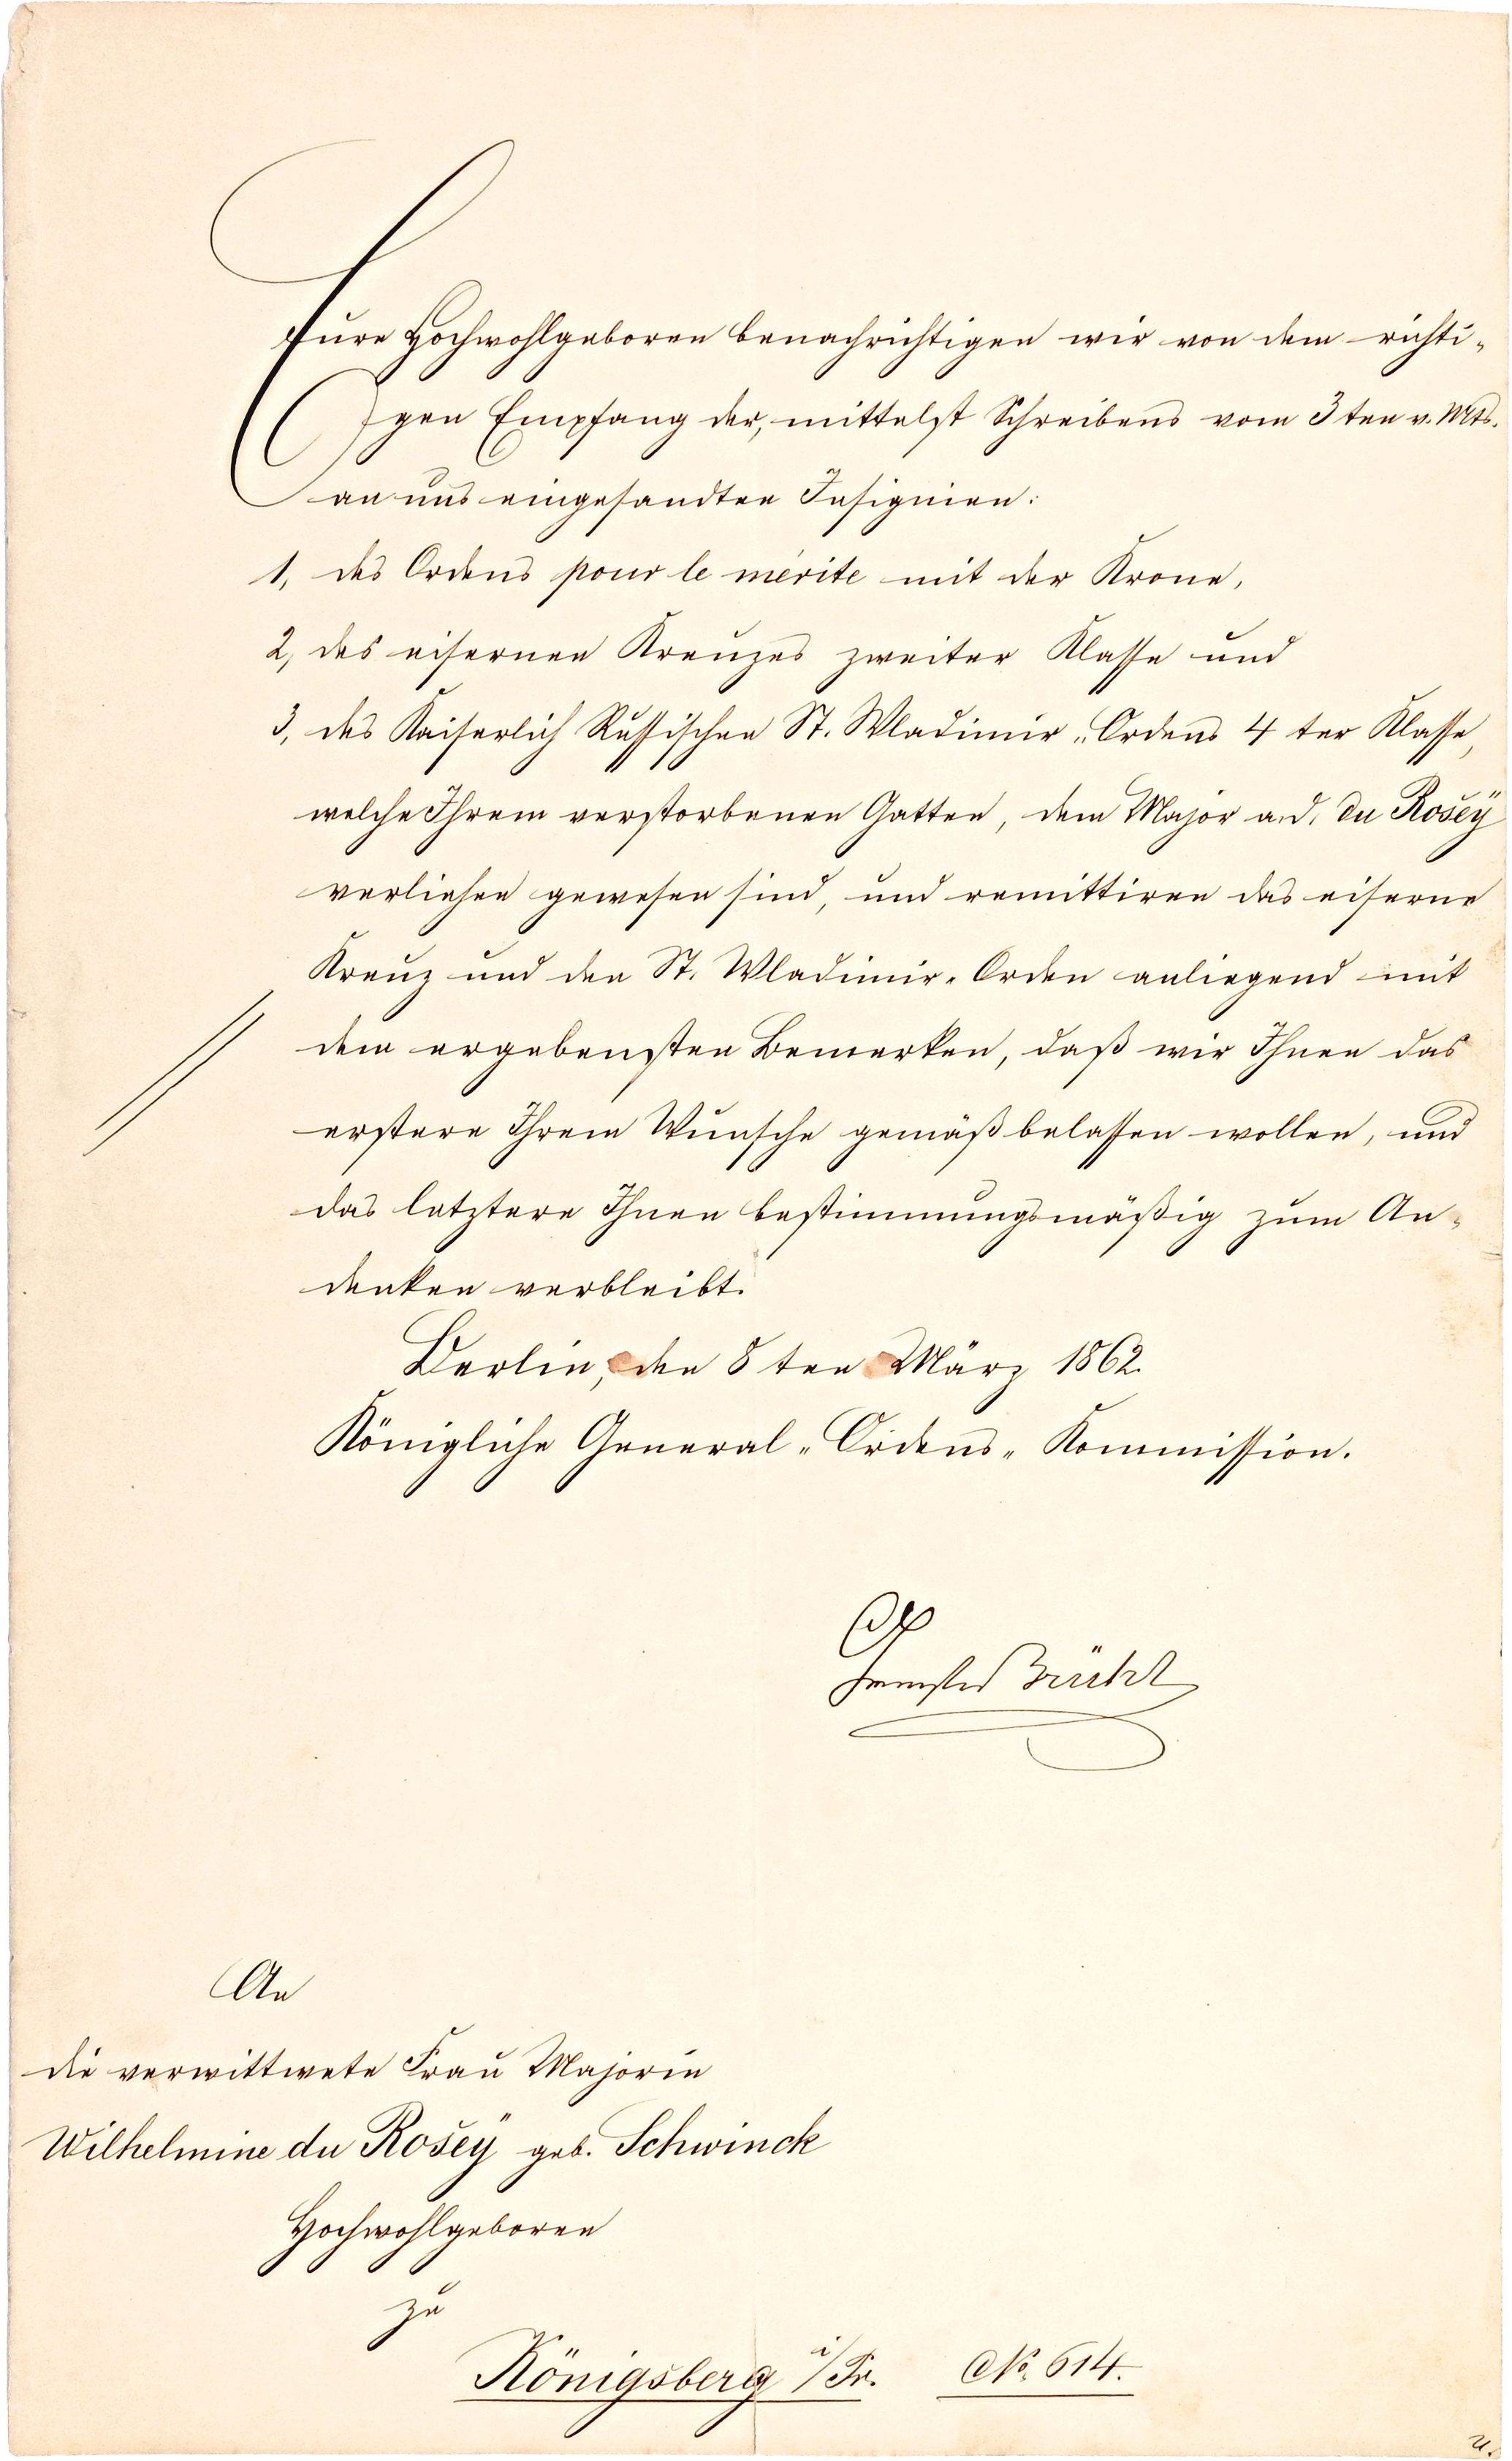 Eure Hochwohlgeboren benachrichtigen wir von dem richti-
gen Empfang der, mittelst Schreibens vom 3ten v. Mts.
an uns eingesandten Insignien:
1, des Ordens pour le mérite mit der Krone,
2, des eisernen Kreuzes zweiter Klasse und
3, des Kaiserlich Russischen St. Wladimir-Ordens 4ter Klasse,
welche Ihrem verstorbenen Gatten, dem Major a. D. du Rosey
verliehen gewesen sind, und remittiren das eiserne
Kreuz und den St. Wladimir-Orden anliegend mit
dem ergebensten Bemerken, daß wir Ihnen das
erstere Ihrem Wunsche gemäß belassen wollen, und
das letztere Ihnen bestimmungsmäßig zum An-
denken verbleibt.
Berlin, den 8ten März 1862.
Königliche General-Ordens-Kommission.
An
die verwittwete Frau Majorin
Wilhelmine du Rosey geb. Schwinck
Hochwohlgeboren
zu
Königsberg i/Pr. No. 614.